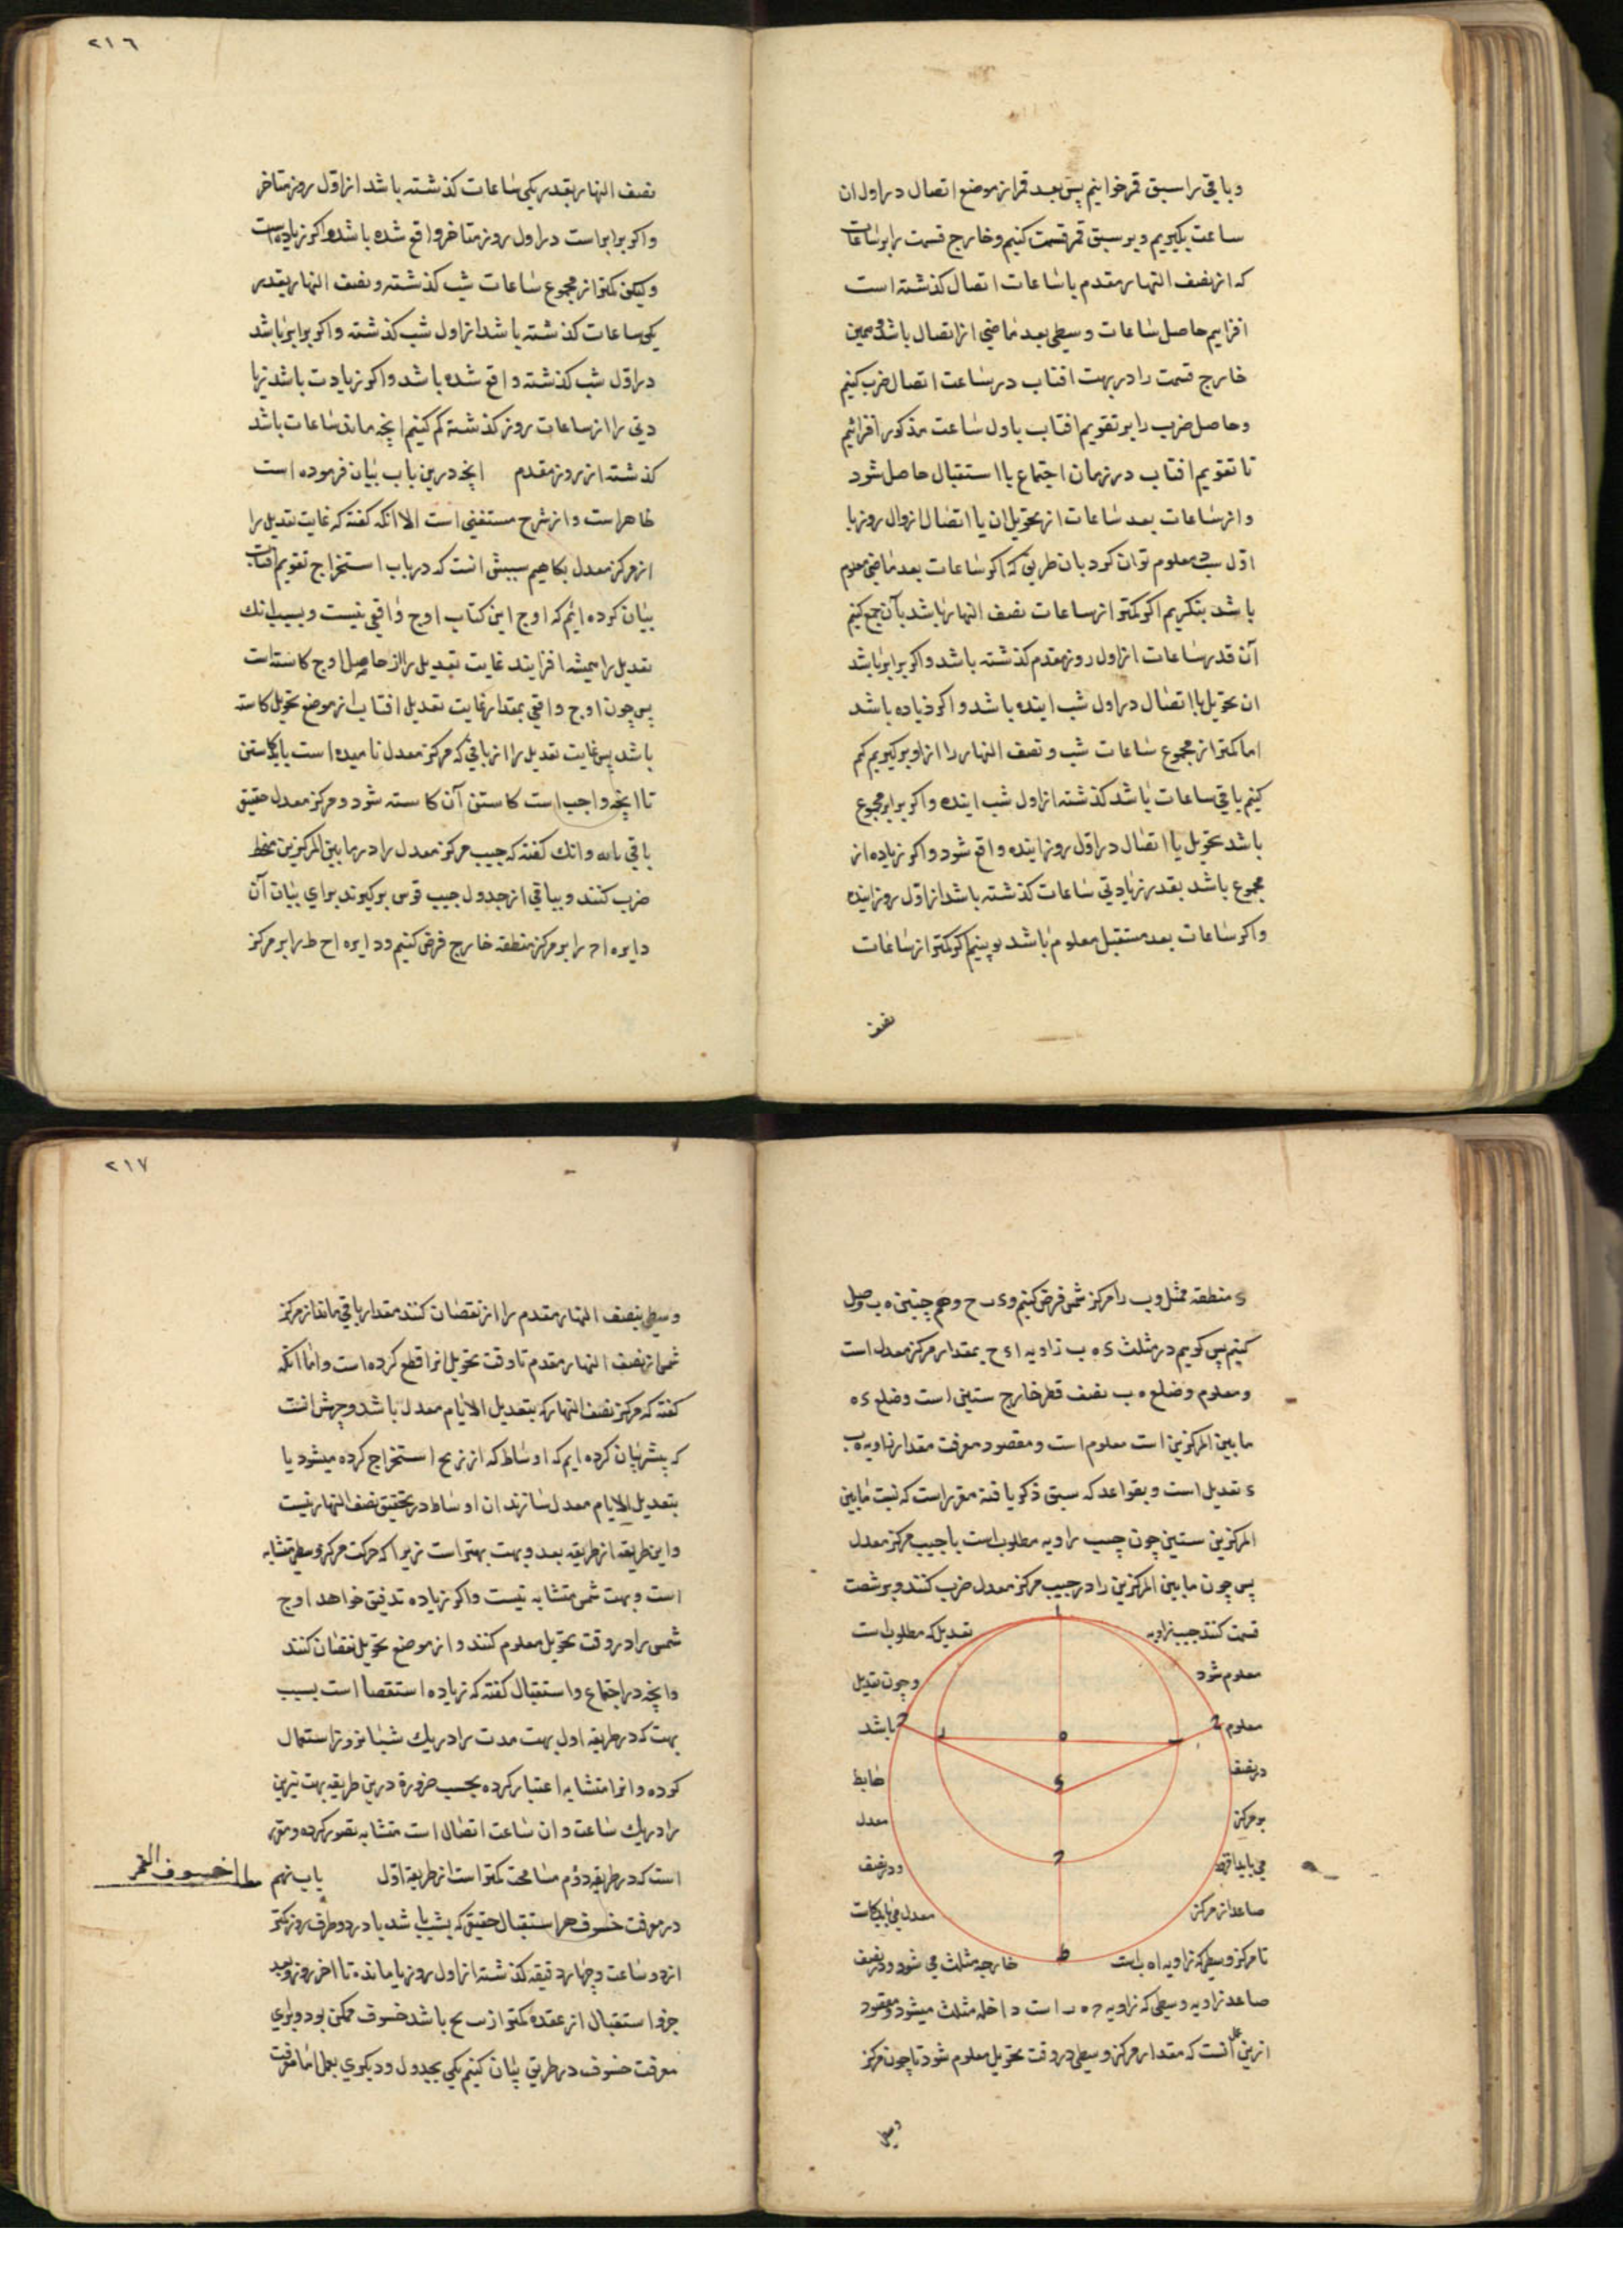 و باقی را سبق قمر خوانیم پس بعد قمر از موضع اتصال در اول ان
ساعت بکیریم و بر سبق قمر قسمت کنیم و خارج قسمت را بر ساعات
که از نصف النهار مقدم با ساعات اتصال کذشته است
افزاییم حاصل ساعات وسیطی بعد ماضی از اتصال باشد و همین
خارج قسمت را در بهت افتاب در ساعت اتصال ضرب کنیم
و حاصل ضرب را بر تقویم افتاب باول ساعت مذکور افزائیم
تا تقویم افتاب در زمان اجتماع یا استقبال حاصل شود
و از ساعات بعد ساعات از تحویل ان یا اتصال از زوال روز با
اول شب معلوم توان کرد بان طریق که اکر ساعات بعد ماضی معلوم
باشد بنکریم اکر کمتر از ساعات نصف النهار باشد بآن جمع کنیم
آن قدر ساعات از اول روز مقدم کذشته باشد و اکر برابر باشد
ان تحویل یا اتصال در اول شب اینده باشد و اکر زیاده باشد
اما کمتر از مجموع ساعات شب و نصف النهار را از او برکیریم کم
کنیم باقی ساعات باشد کذشته از اول شب اینده و اکر برابر مجموع
باشد تحویل یا اتصال در اول روز اینده واقع شود و اکر زیاده از
مجموع باشد بقدر زیادتی ساعات کذشته باشد از اول روز اینده
و اکر ساعات بعد مستقبل معلوم باشد ببینیم اکر کمتر از ساعات
نصف
٢١٦
نصف النهار بقدر یکی ساعات کذشته باشد از اول روز متاخر
و اکر برابر است در اول روز متاخر واقع شده باشد و اکر زیاده است
ولیکن کمتر از مجموع ساعات شب کذشته و نصف النهار بقدر
یکی ساعات کذشته باشد از اول شب کذشته و اکر برابر باشد
در اول شب کذشته واقع شده باشد و اکر زیادت باشد زیا
دتی را از ساعات روز کذشته کم کنیم انچه ماند ساعات باشد
کذشته از روز مقدم انچه درین باب بیان فرموده است
ظاهر است و از شرح مستغنی است الا انکه کفته که غایت تعدیل را
از مرکز معدل بکاهیم سببش انست که در باب استخراج تقویم افتاب
بیان کرده ایم که اوج این کتاب اوج واقعی نیست و بسبب انک
تعدیل را همیشه افزایند غایت تعدیل را از حاصل اوج کاسته است
پس چون اوج واقعی بمقدار غایت تعدیل افتاب از موضع تحویل کاسته
باشد پس غایت تعدیل را از باقی که مرکز معدل نامیده است باید کاستن
تا انچه واجب است کاستن آن کاسته شود و مرکز معدل حقیق
باقی ماند و انک کفته که جیب مرکز معدل را در ما بین المرکزین منحط
ضرب کنند و بباقی از جدول جیب قوس برکیرند برای بیان آن
دایره ا ح را بر مرکز منطقه خارج فرض کنیم و دایره ا ح ط را بر مرکز
ی منطقه ممثل و ب را مرکز شمس فرض کنیم و ی ب ح و هم چنین ه ب وصل
کنیم پس کوییم در مثلث ی ه ب زاویه ا ی ح بمقدار مرکز معدل است
و معلوم و ضلع ه ب نصف قطر خارج ستینی است و ضلع ی ه
ما بین المرکزین است معلوم است و مقصود معرفت مقدار زاویه ه ب
ی تعدیل است و بقواعد که سبق ذکر یافته مقرر است که نسبت ما بین
المرکزین ستین چون جیب زاویه مطلوب است با جیب مرکز معدل
پس چون ما بین المرکزین را در جیب مرکز معدل ضرب کنند و بر شصت
قسمت کنند جیب زاویه تعدیل که مطلوب است
معلوم شود و چون تعدیل
معلوم باشد
در نصف هابط
بر مرکز معدل
می باید افزود و در نصف
صاعد از مرکز معدل می باید کاست
تا مرکز وسیطی که زاویه ا ه ب است خارجه مثلث می شود و در نصف
صاعد زاویه وسیطی که زاویه ح ه ر است داخله مثلث میشود و مقصود
ازین عمل انست که مقدار مرکز وسیطی در وقت تحویل معلوم شود تا چون مرکز
وسیطی
٢١٧
وسیطی بنصف النهار مقدم را از نقصان کنند مقدار باقی ماند از مرکز
شمس از نصف النهار مقدم تا وقت تحویل انرا قطع کرده است و اما انکه
کفته که مرکز نصف النهار که بتعدیل الایام معدل باشد وجهش انست
که پیشتر بیان کرده ایم که اوساط که از زیج استخراج کرده میشود یا
بتعدیل الایام معدل سازند ان اوساط در تحقیق نصف النهار نیست
و این طریقه از طریقه بعد و بهت بهتر است زیرا که حرکت مرکز وسطی متشابه
است و بهت شمس متشابه نیست و اکر زیاده تدقیق خواهد اوج
شمس را در وقت تحویل معلوم کنند و از موضع تحویل نقصان کنند
و انچه در اجتماع و استقبال کفته که زیاده استقصا است بسبب
بهت که در طریقه اول بهت مدت را در یک شبانروز استعمال
کرده و انرا متشابه اعتبار کرده بحسب ضرورة درین طریقه بهت نیرین
را در یک ساعت و ان ساعت اتصال است متشابه تصور کرده و مقرر
است که در طریقه دوم مسامحت کمتر است از طریقه اول باب نهم
خسوف القمر
در معرفت خسوف هر استقبال حقیقی که بشب باشد یا در دو طرف روز کمتر
از دو ساعت و چهار دقیقه کذشته از اول روز یا مانده تا اخر روز و بعد
جزو استقبال از عقده کمتر از ب ح باشد خسوف ممکن بود و برای
معرفت خسوف در طریق بیان کنیم یکی بجدول و دیکری بعمل اما معرفت